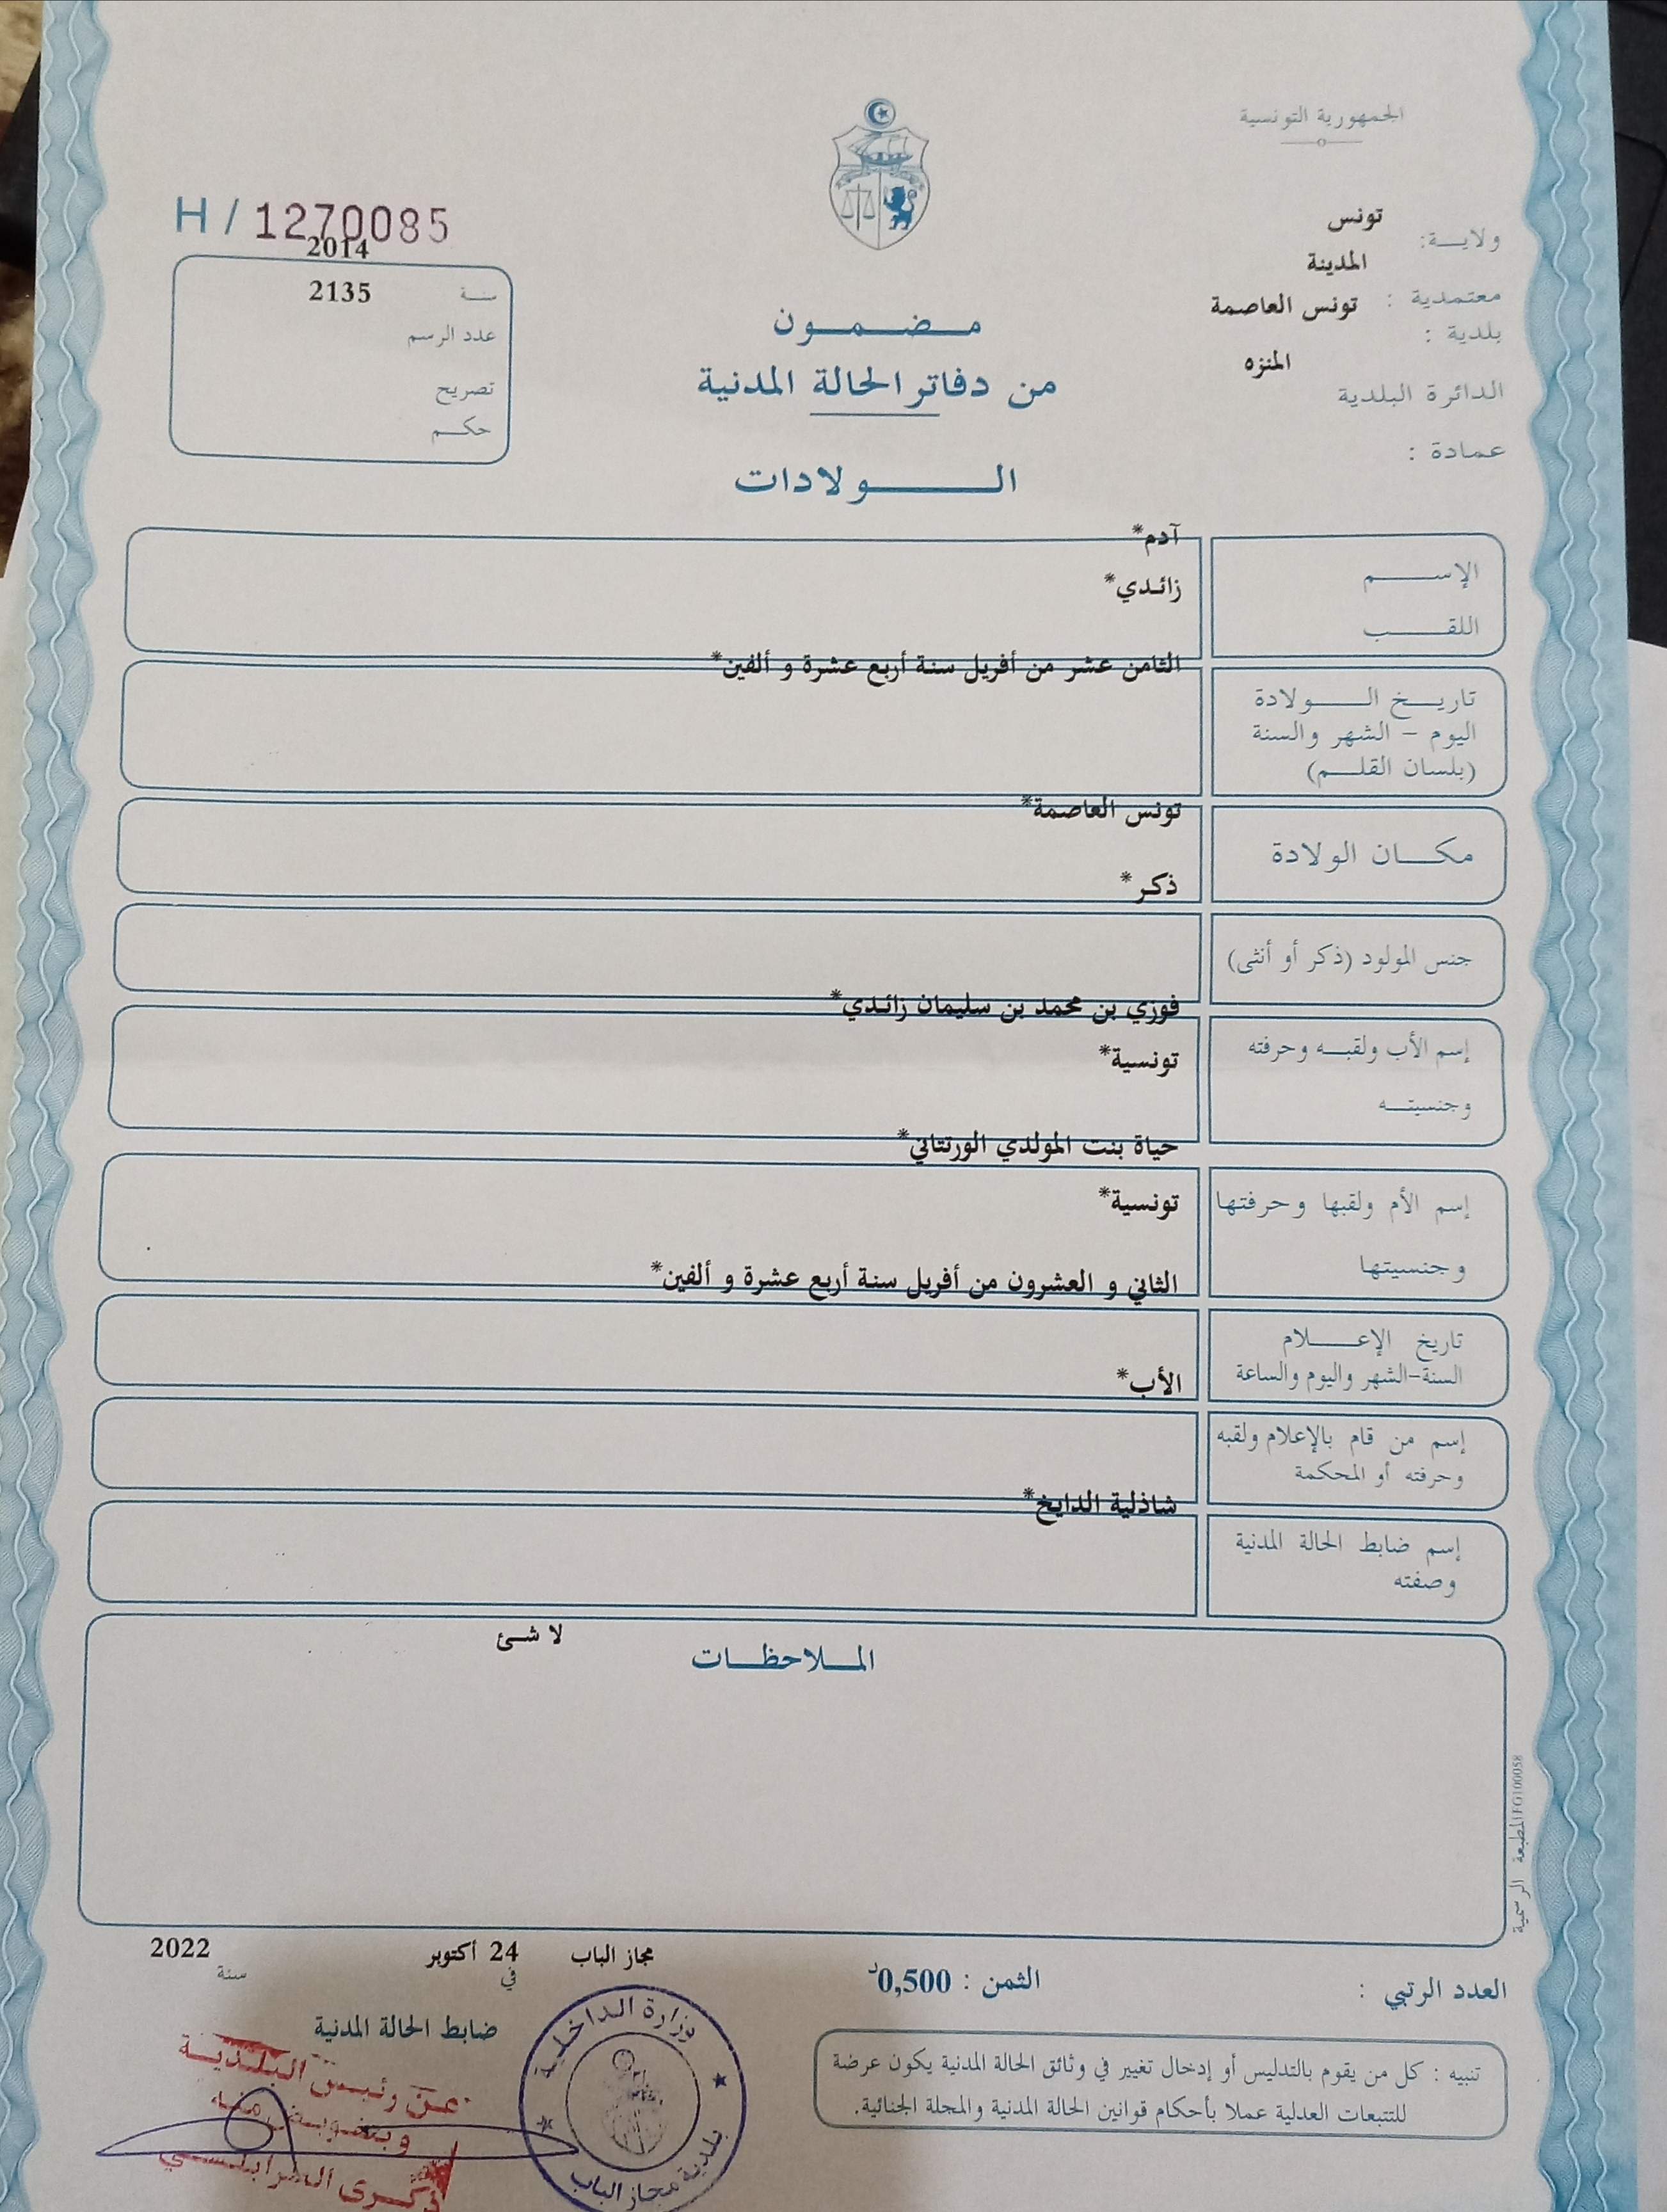 الجمهورية التونسية
ولايــة: تونس
المدينة
معتمدية : تونس العاصمة
بلدية :
المنزه
الدائرة البلدية
عمادة :
H / 1270085
2014
سنة 2135
عدد الرسم
تصريح
حكــم
مـضـمـون
من دفاتر الحالة المدنية
الــولادات
آدم*
الإســم
زائدي*
اللقــب
الثامن عشر من أفريل سنة أربع عشرة و ألفين*
تاريــخ الــولادة
اليوم - الشهر والسنة
(بلسان القلــم)
تونس العاصمة*
مكــان الولادة
ذكر*
جنس المولود (ذكر أو أنثى)
فوزي بن محمد بن سليمان زائدي*
إسم الأب ولقبــه وحرفته
تونسية*
وجنسيتــه
حياة بنت المولدي الورتتاني*
إسم الأم ولقبها وحرفتها
تونسية*
وجنسيتها
الثاني و العشرون من أفريل سنة أربع عشرة و ألفين*
تاريخ الإعــلام
السنة-الشهر واليوم والساعة
الأب*
إسم من قام بالإعلام ولقبه
وحرفته أو المحكمة
شاذلية الدايخ*
إسم ضابط الحالة المدنية
وصفته
لا شئ
المــلاحظــات
المطبعة الرسمية FG100058
مجاز الباب 24 أكتوبر 2022
في سنة
العدد الرتبي :
الثمن : 0,500د
ضابط الحالة المدنية
عن رئيس البلدية
وبتفويض منه
ذكرى الطرابلسي
وزارة الداخلية
بلدية مجاز الباب
تنبيه : كل من يقوم بالتدليس أو إدخال تغيير في وثائق الحالة المدنية يكون عرضة
للتتبعات العدلية عملا بأحكام قوانين الحالة المدنية والمجلة الجنائية.